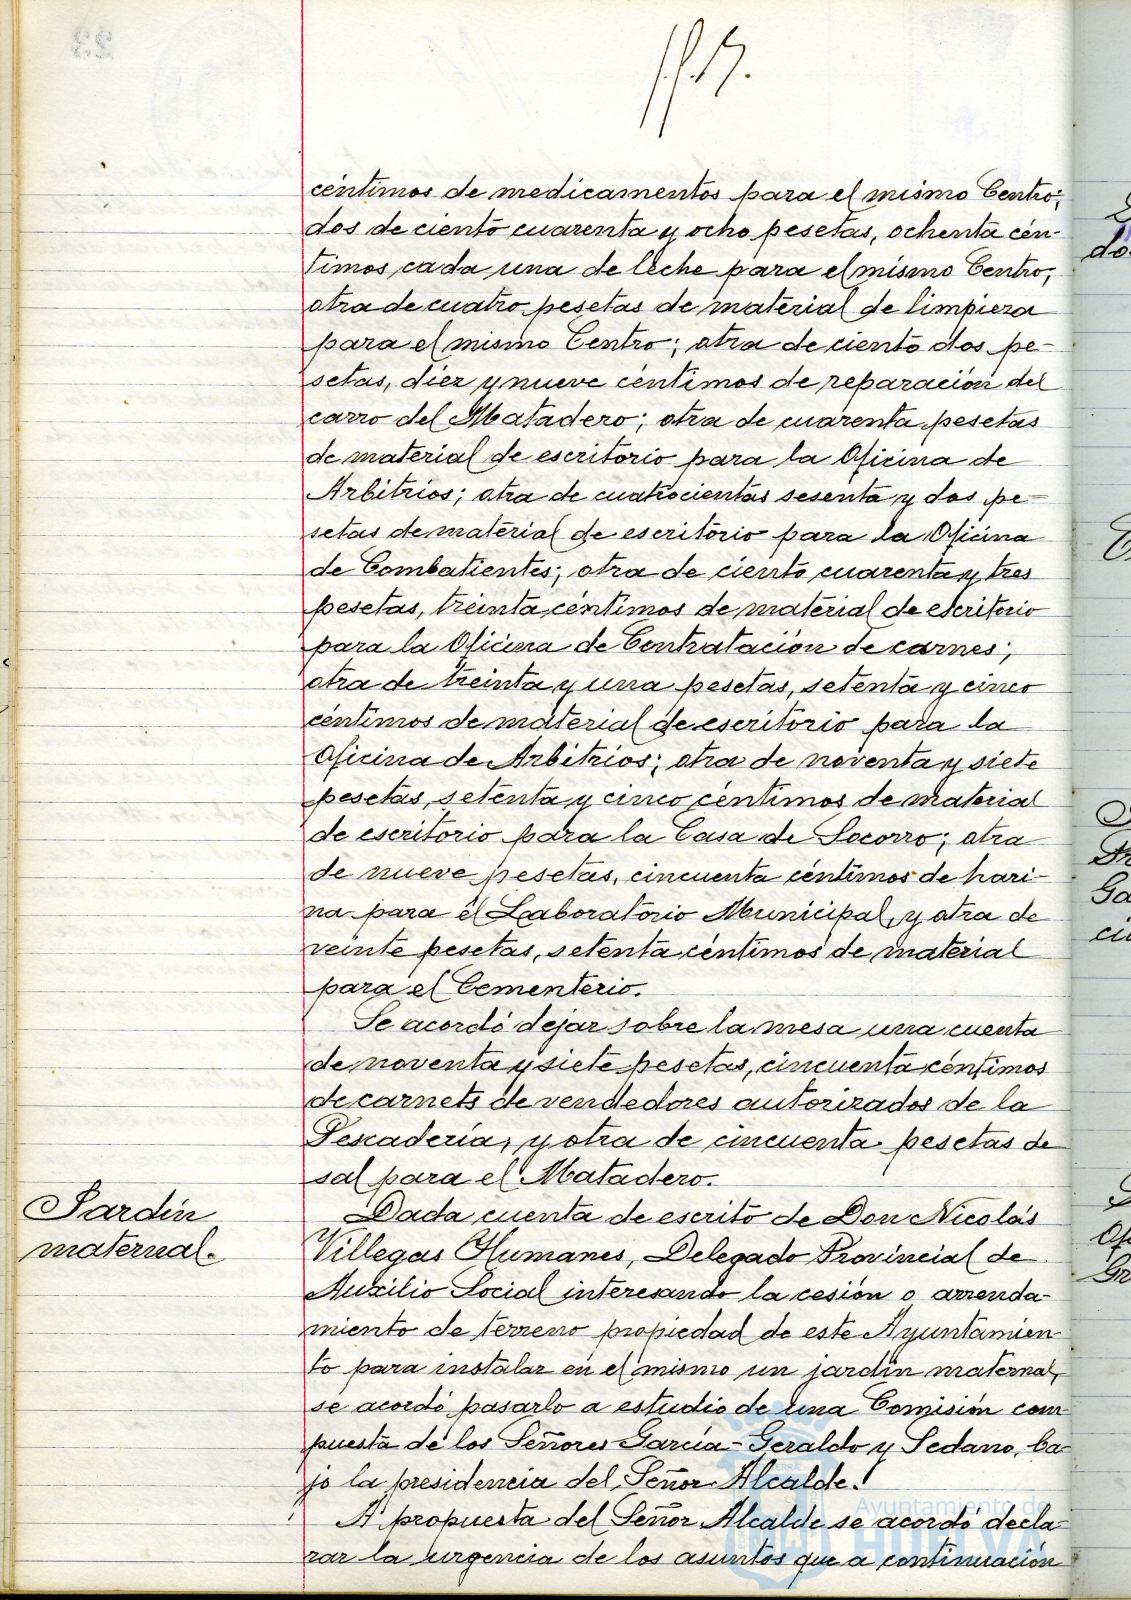 céntimos de medicamentos para el mismo Centro;
dos de ciento cuarenta y ocho pesetas, ochenta cén-
timos cada una de leche para el mismo Centro;
otra de cuatro pesetas de material de limpieza
para el mismo Centro; otra de ciento dos pe-
setas, diez y nueve céntimos de reparación del
carro del Matadero; otra de cuarenta pesetas
de material de escritorio para la Oficina de
Arbitrios; otra de cuatrocientas sesenta y dos pe-
setas de material de escritorio para la Oficina
de Combatientes; otra de ciento cuarenta y tres
pesetas, treinta céntimos de material de escritorio
para la Oficina de Contratación de carnes;
otra de treinta y una pesetas, setenta y cinco
céntimos de material de escritorio para la
Oficina de Arbitrios; otra de noventa y siete
pesetas, setenta y cinco céntimos de material
de escritorio para la Casa de Socorro; otra
de nueve pesetas, cincuenta céntimos de hari-
na para el Laboratorio Municipal, y otra de
veinte pesetas, setenta céntimos de material
para el Cementerio.
Se acordó dejar sobre la mesa una cuenta
de noventa y siete pesetas, cincuenta céntimos
de carnets de vendedores autorizados de la
Pescadería, y otra de cincuenta pesetas de
sal para el Matadero.
Jardín
maternal.
Dada cuenta de escrito de Don Nicolás
Villegas Humanes, Delegado Provincial de
Auxilio Social interesando la cesión o arrenda-
miento de terreno propiedad de este Ayuntamien-
to para instalar en el mismo un jardín maternal,
se acordó pasarlo a estudio de una Comisión com-
puesta de los Señores García-Geraldo y Sedano, ba-
jo la presidencia del Señor Alcalde.
A propuesta del Señor Alcalde se acordó decla-
rar la urgencia de los asuntos que a continuación
Ayuntamiento de
HUELVA